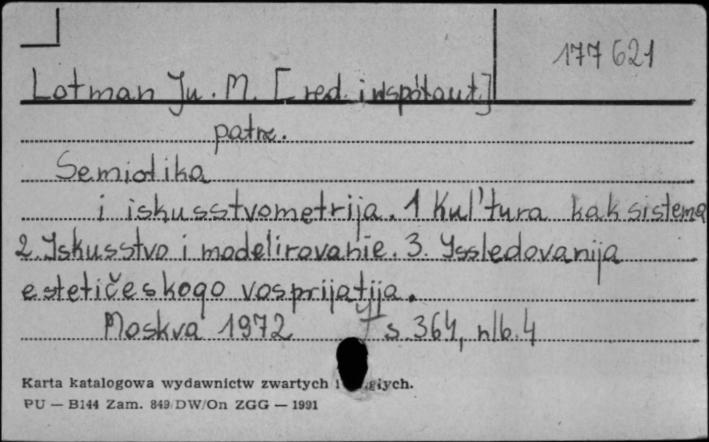 177 621
Lotman Ju. M. [red. i współaut.]
patrz.
Semiotika
i iskusstvometrija. 1 Kul'tura kak sistema
2. Iskusstvo i modelirovanie. 3. Issledovanija
estetičeskogo vosprijatija.
Moskva 1972 s. 364, nlb. 4
Karta katalogowa wydawnictw zwartych i
PU — B144 Zam. 849/DW/On ZGG — 1991